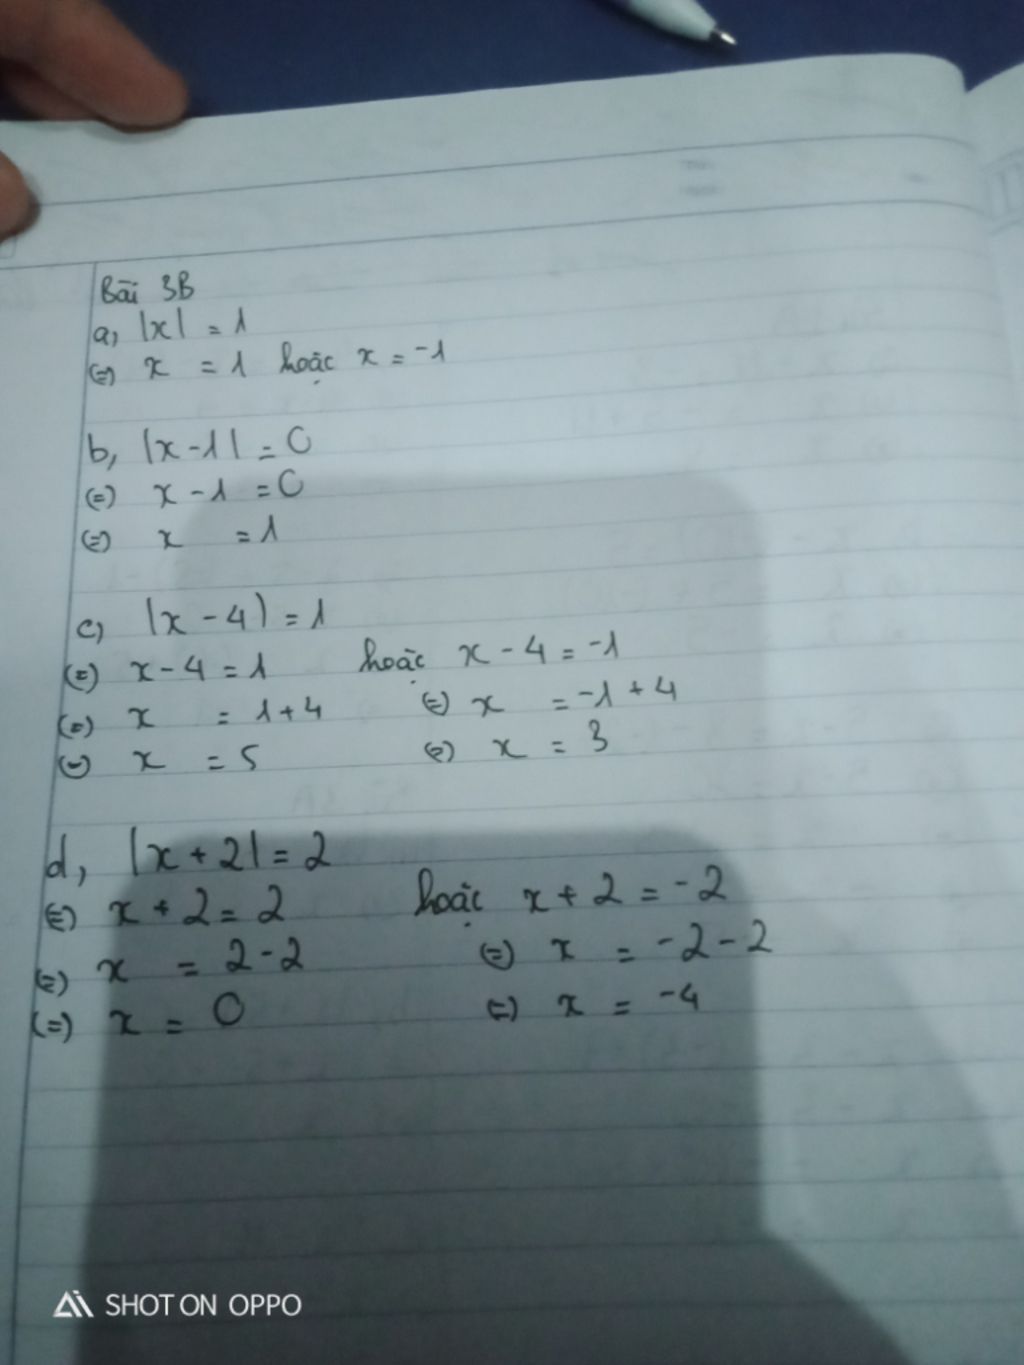 Bài 3B
a, |x| = 1
(=) x = 1 hoặc x = -1
b, |x - 1| = 0
(=) x - 1 = 0
(=) x = 1
c, |x - 4| = 1
(=) x - 4 = 1 hoặc x - 4 = -1
(=) x = 1 + 4 (=) x = -1 + 4
(=) x = 5 (=) x = 3
d, |x + 2| = 2
(=) x + 2 = 2 hoặc x + 2 = -2
(=) x = 2 - 2 (=) x = -2 - 2
(=) x = 0 (=) x = -4
SHOT ON OPPO